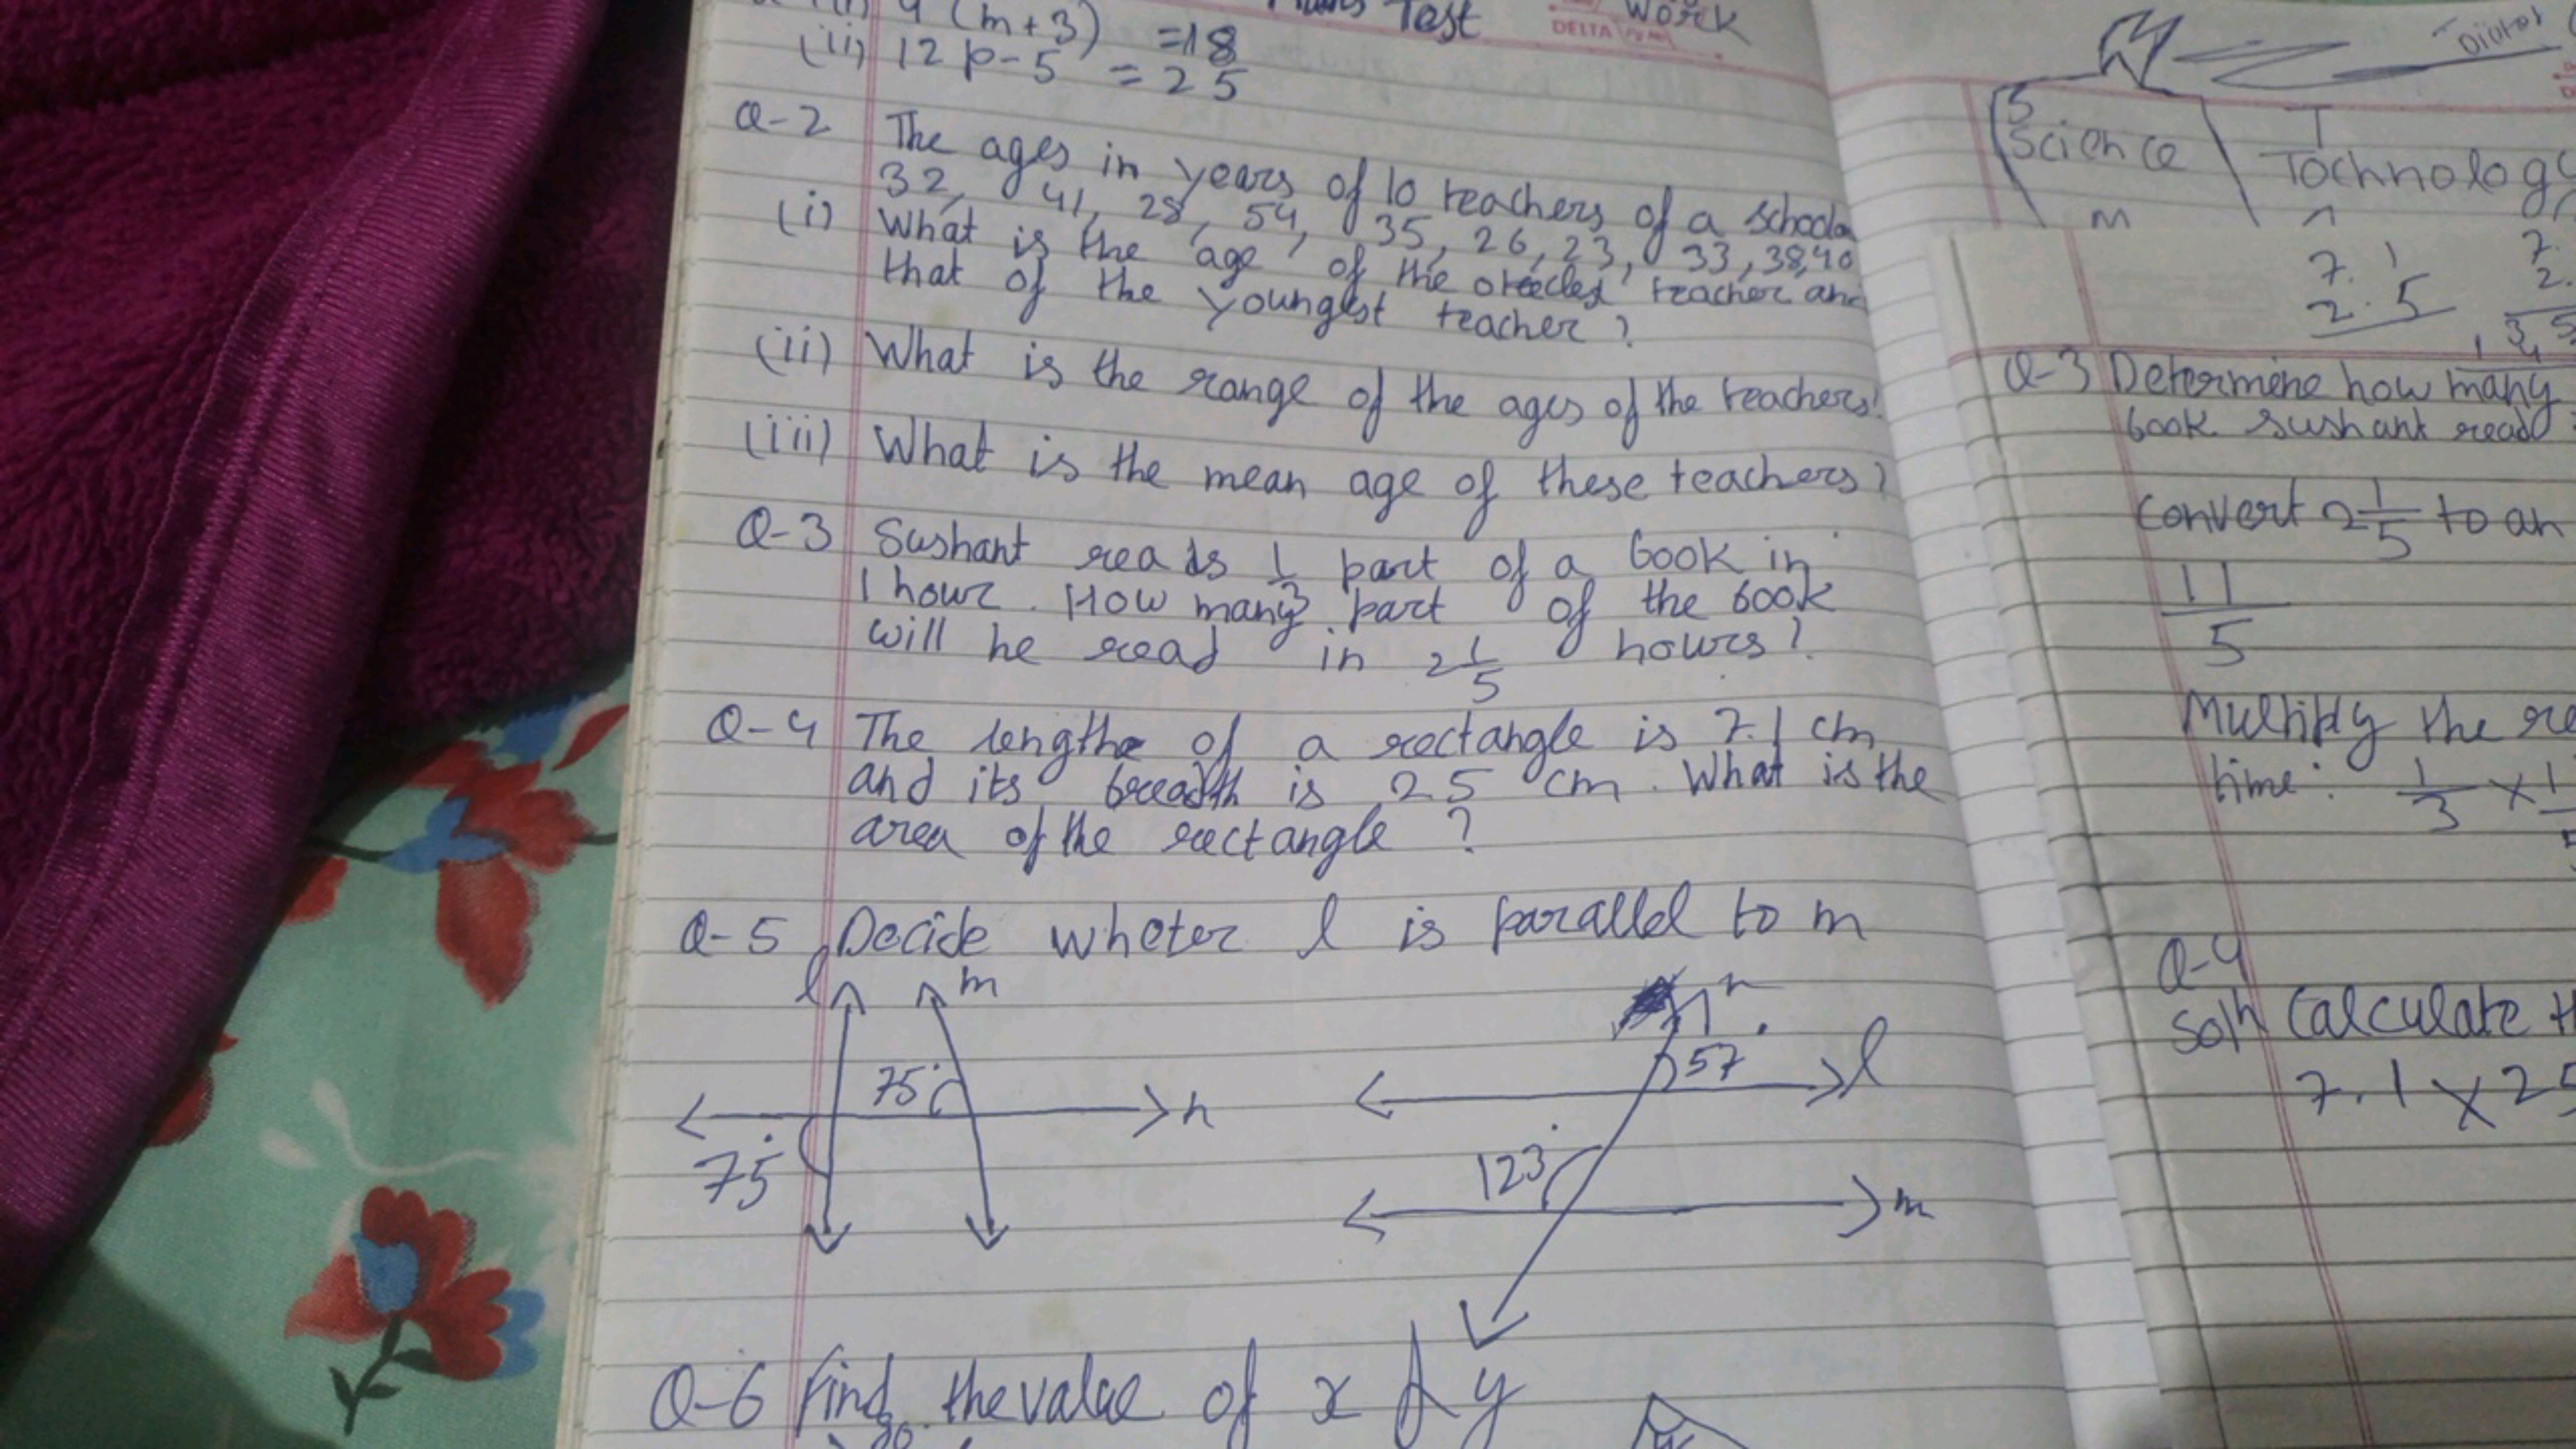 4 (m+3) =18
Test
Work
DELTA
(ii) 12 p-5 = 25
Q-2 The ages in years of 10 teachers of a school
32, 41, 28, 54, 35, 26, 23, 33, 38, 40
(i) What is the age of the teacher and
that of the youngest teacher?
(ii) What is the range of the ages of the teachers?
(iii) What is the mean age of these teachers?
Q-3 Sushant reads 1/3 part of a book in
1 hour. How many part of the book
will he read in 2 1/5 hours?
Q-4 The length of a rectangle is 7.1 cm
and its breadth is 25 cm. What is the
area of the rectangle?
Q-5 Decide wheter l is parallel to m
l m
75°
n
75°
n
57°
l
123°
m
Q-6 Find the value of x & y
S T
Science Tochnology
m n
7.1
2.5
Q-3 Determine how many
book sushant read
Convert 2 1/5 to an
11/5
Multiply the re
time: 1/3 ×
Q-4
Soln Calculate th
7.1 × 25